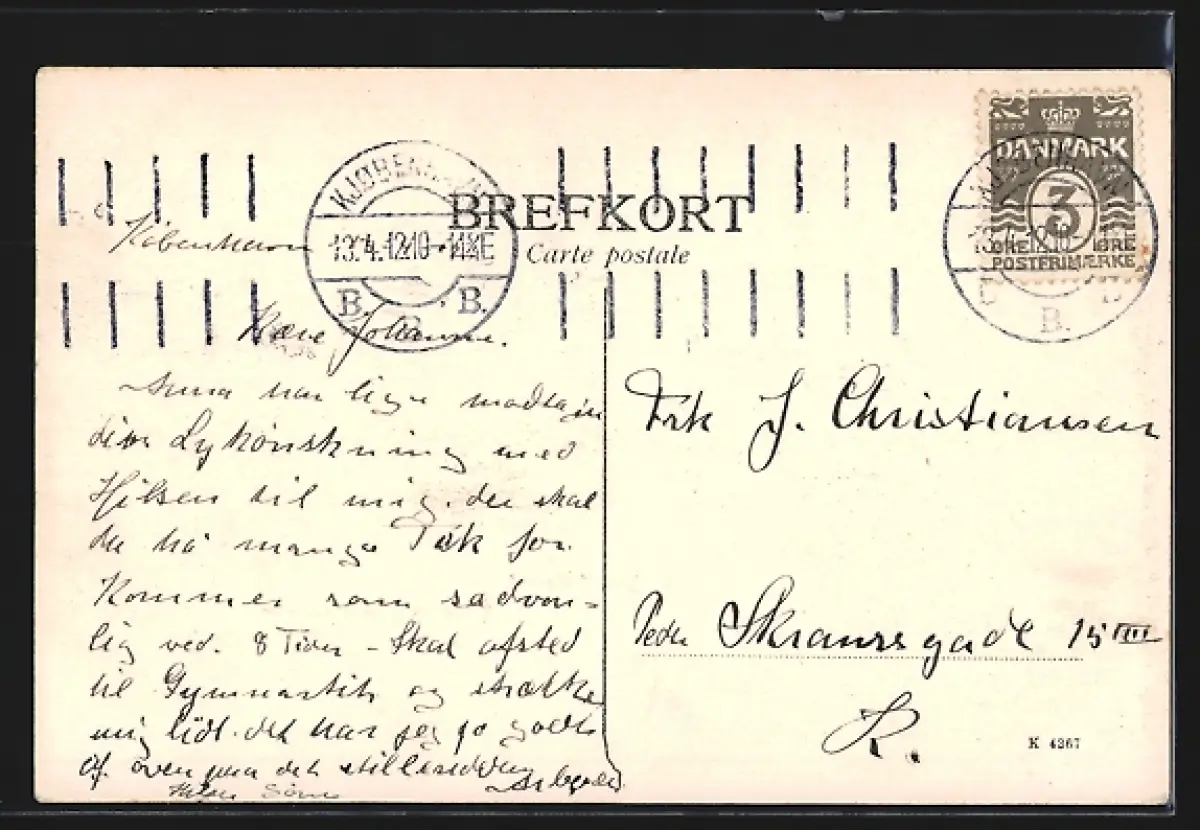 DANMARK
3
ØRE ØRE
POSTFRIMÆRKE
KJØBENHAVN
13.4.12 10-11½E
B. B.
BREFKORT
Carte postale
København
Kære Johanne.
har lige modtagen
din Lykønskning med
Hilsen til mig. det skal
du ha mange Tak for.
Kommer som sadvon=
lig ved. 8 Tiden - Skal afsted
til Gymnastik og strække
mig lidt. det har jeg jo godt
af oven paa det stillesiddende
Arbejde
Hilsen
Frk J. Christiansen
Peder Skramsgade 15 IIII
K.
K 4267